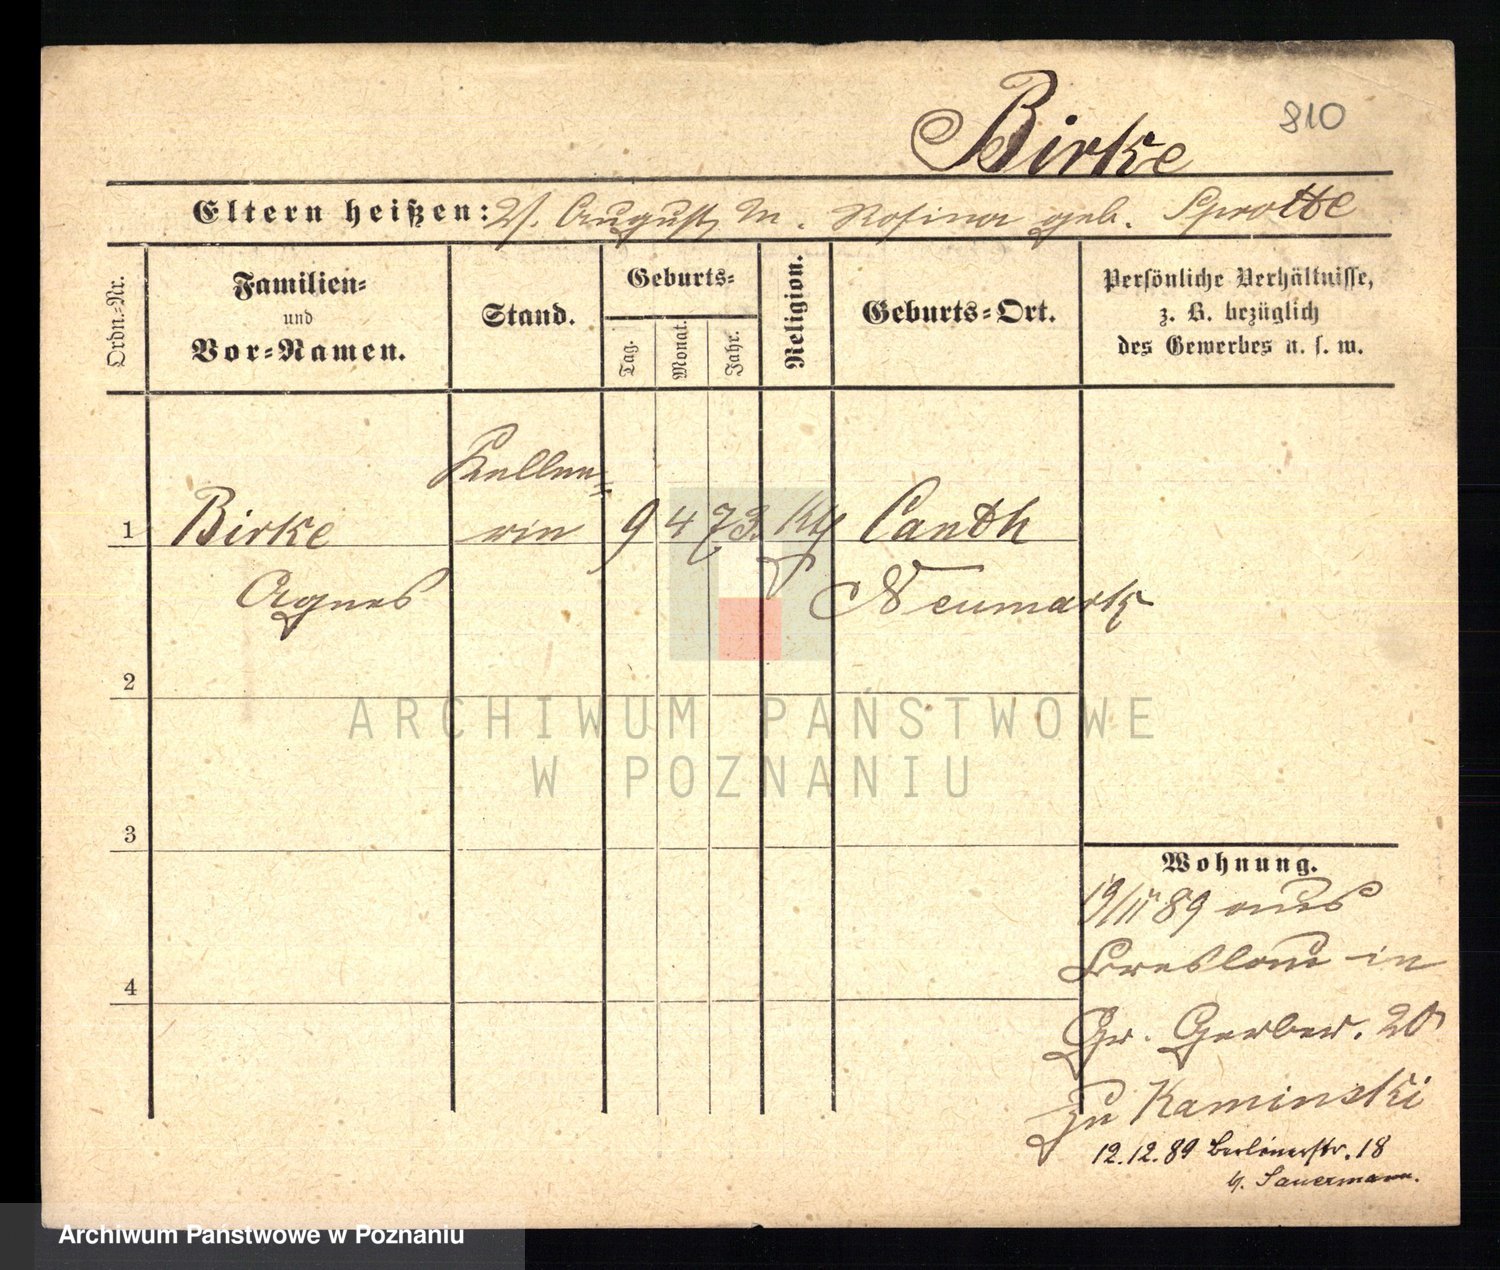 Birke 810
Eltern heißen: V. August, M. Rosina geb. Sprotte
Ordn.-Nr.
Familien-
und
Vor-Namen.
Stand.
Geburts-
Tag.
Monat.
Jahr.
Religion.
Geburts-Ort.
Persönliche Verhältnisse,
z. B. bezüglich
des Gewerbes u. s. w.
Kellne-
1 Birke rin 9 4 73. Kth Canth
Agnes Neumarkt
2
3
4
Wohnung.
19/11 89 aus
Breslau in
Gr. Gerber. 20
zu Kaminski
12.12.89 Berlinerstr. 18
b. Sauermann.
ARCHIWUM PAŃSTWOWE
W POZNANIU
Archiwum Państwowe w Poznaniu